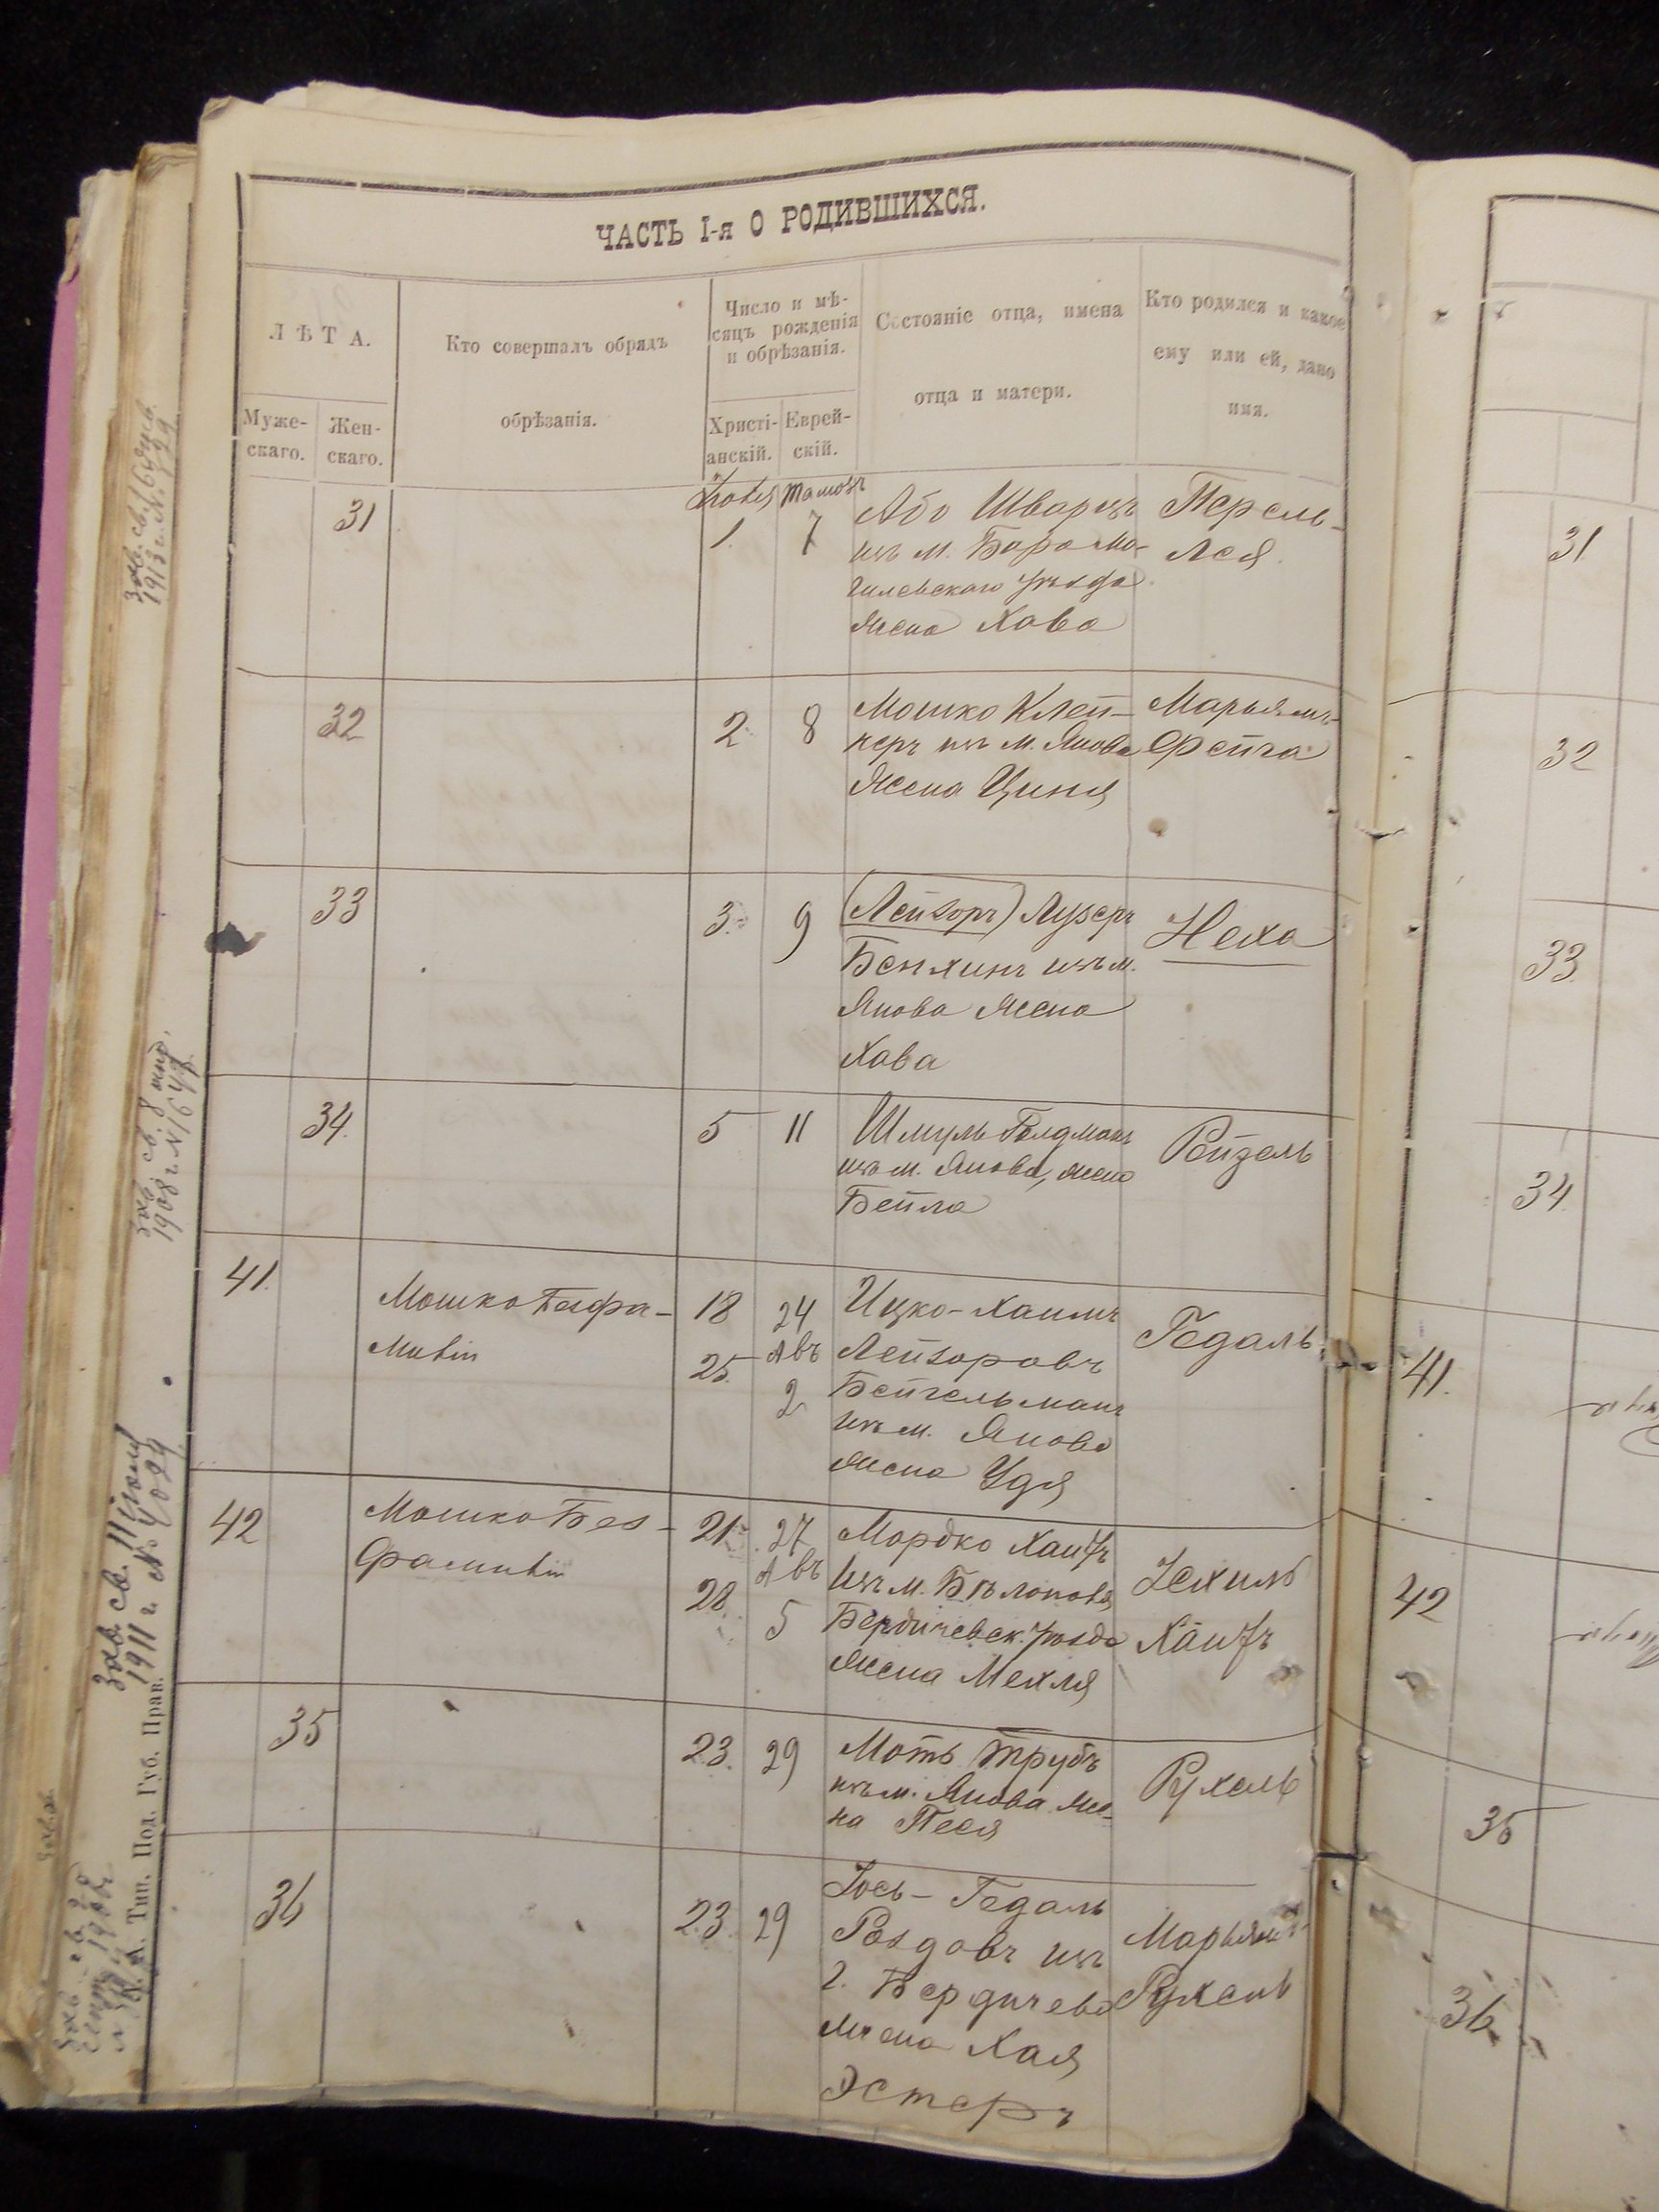 ЧАСТЬ I-я О РОДИВШИХСЯ.
ЛѢТА.
Муже-
скаго.
Жен-
скаго.
Кто совершалъ обрядъ
обрѣзанія.
Число и мѣ-
сяцъ рожденія
и обрѣзанія.
Христі-
анскій.
Еврей-
скій.
Состояніе отца, имена
отца и матери.
Кто родился и какое
ему или ей, дано
имя.
31
Іюля
1.
Тамозъ
7
Або Шварцъ
изъ м. Бара Мо-
гилевскаго уѣзда
жена Хава
Перель-
Лея
31
32
2
8
Мошко Клей-
неръ изъ м. Янова
Жена Циня
Марьямъ-
Фейга
32
33
3.
9
(Лейзоръ) Лузеръ
изъ м.
Янова жена
Хава
Неха
33
34.
5
11
Шмуль Голдманъ
изъ м. Янова, жена
Бейла
Рейзель
34
41.
Мошко Безфа-
милій
18
25.
24
Авъ
2
Ицко-Хаимъ
Лейзоровъ
Бейгельманъ
изъ м. Янова
жена Удя
Гедаль
41.
42
Мошко Без-
фамилій
21
28.
27
Авъ
5
Мордко
изъ м. Бѣлополя
Бердичевск. уѣзда
жена Мехля
Іехиль
42
35
23.
29
Моть Трубъ
изъ м. Янова же-
на Песя
Рухель
35
36
23.
29
Іось-Гедаль
изъ
г. Бердичева
жена Хая
Эстеръ
Марьямъ
Рухель
36
Зав. св. 8
1908 г. №1647
Зав. св. 11 Іюля
1911 г. № 4089
К. А. Тип. Под. Губ. Прав.